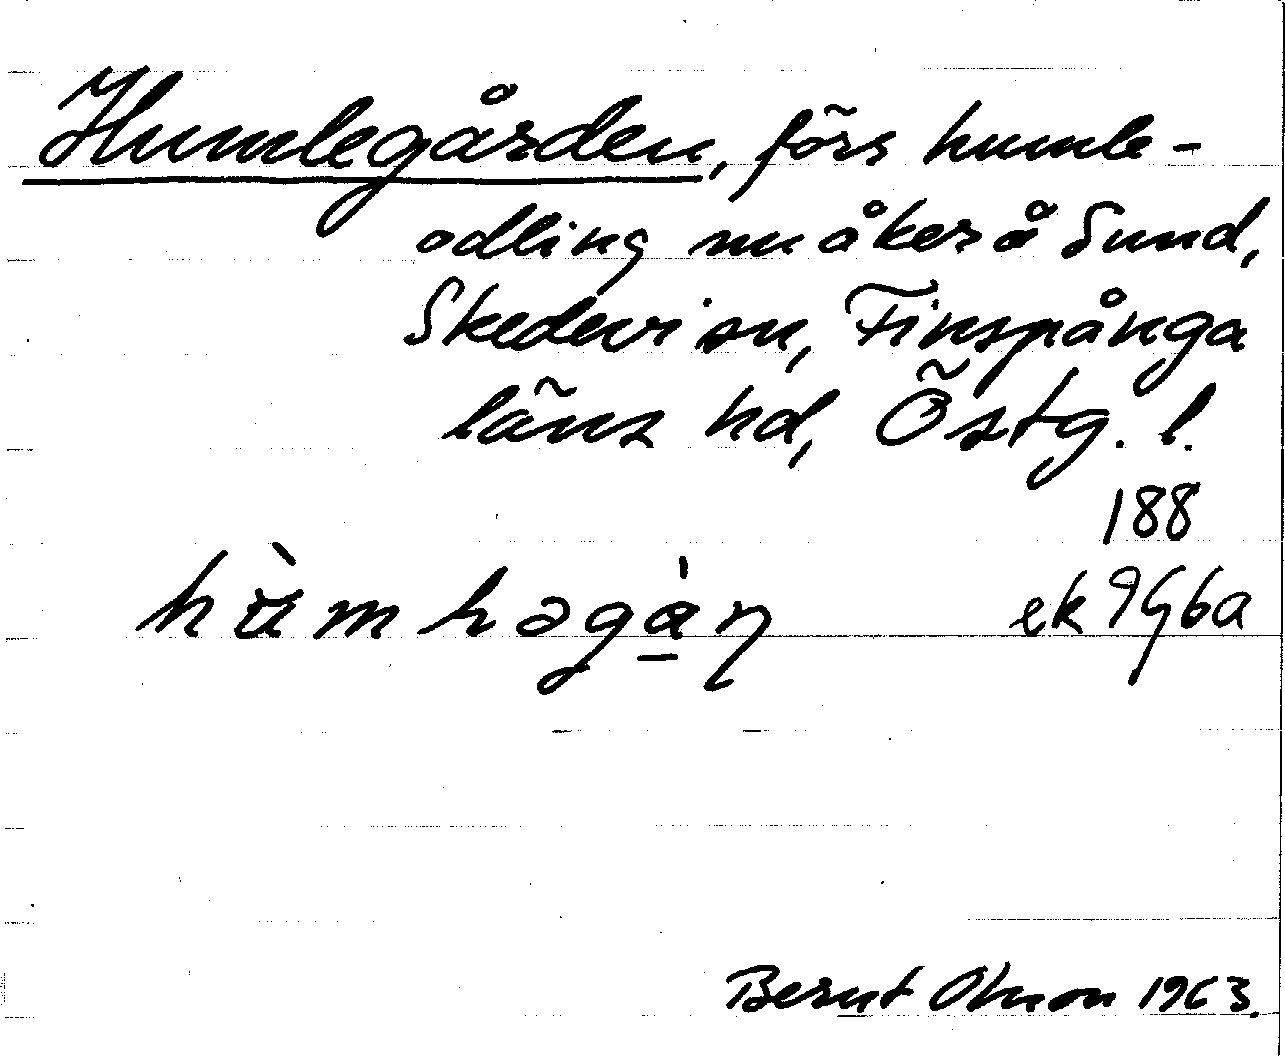 Humlegården, förs humle-
odling nu åker å Sund,
Skedevi sn, Finspånga
läns hd, Östg. l.
188
ek 9G6a
Bernt Olsson 1963.